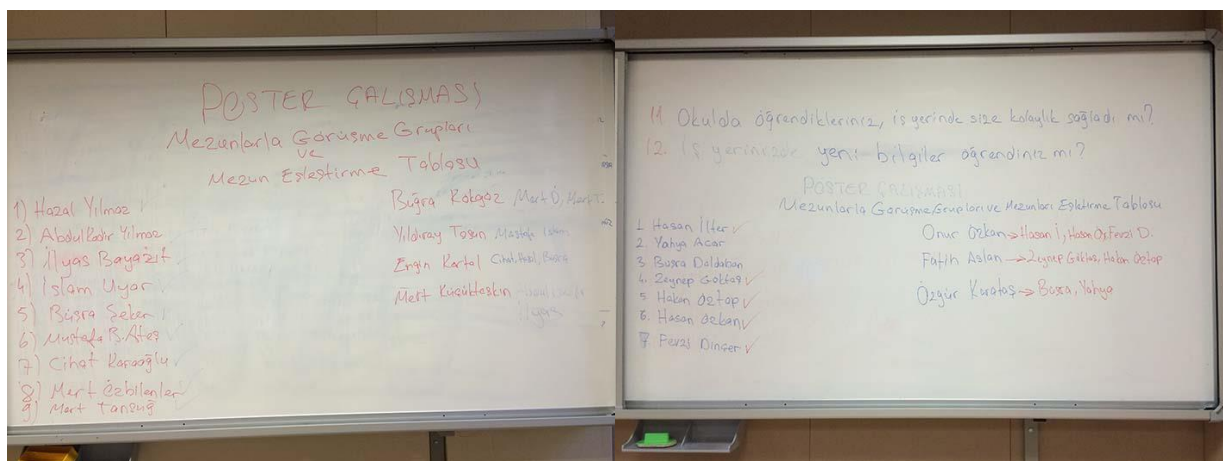 POSTER ÇALIŞMASI
Mezunlarla Görüşme Grupları
ve
Mezun Eşleştirme Tablosu
1) Hazal Yılmaz
2) Abdulkadir Yılmaz
3) İlyas Bayazıt
4) İslam Uyar
5) Büşra Şeker
6) Mustafa B. Ateş
7) Cihat Karaoğlu
8) Mert Özbilenler
9) Mert Tanşuğ
Buğra Kobgoz Mert Ö, Mert T.
Yıldıray Tosun Mustafa İslam
Engin Kartal Cihat, Hazal, Büşra
Mert Küçüktaşkın
İlyas
11. Okulda öğrendikleriniz, iş yerinde size kolaylık sağladı mı?
12. İş yerinizde yeni bilgiler öğrendiniz mi?
POSTER ÇALIŞMASI
Mezunlarla Görüşme Grupları ve Mezunları Eşleştirme Tablosu
1. Hasan İlter ✓
2. Yahya Acar
3. Büşra Daldaban
4. Zeynep Göktaş ✓
5. Hakan Öztop ✓
6. Hasan Özkan ✓
7. Fevzi Dinçer ✓
Onur Özkan → Hasan İ, Hasan Ö, Fevzi D.
Fatih Aslan → Zeynep Göktaş, Hakan Öztop
Özgür Kurataş → Büşra, Yahya